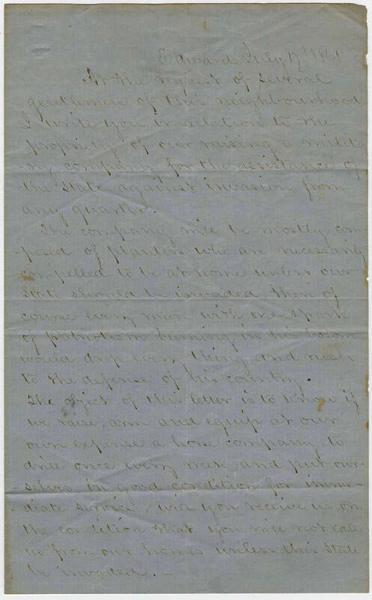 Edwards July 17th 1861
At the request of several
gentlemen of this neighbourhood
I write you in relation to the
propriety of our raising a milita
ry company for the assistance of
the State against invasion from
any quarter.
The company will be mostly com
posed of planters who are necessarily
compelled to be at home unless our
State should be invaded then of
course every man with the spark
of patriotism burning in his bosom
would drop every thing and rush
to the defense of his country.
The object of this letter is to know if
we raise, arm and equip at our
own expense a home company, to
drill once every week and put our
selves in good condition for imme
diate service, will you receive us on
the condition that you will not call
us from our homes unless this State
be invaded. —